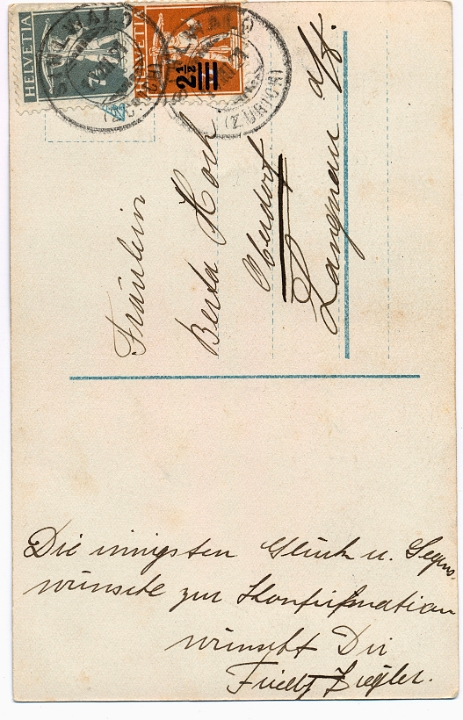 HELVETIA
HELVETIA
2½
SIHLWALD
(ZÜRICH)
SIHLWALD
(ZÜRICH)
Fräulein
Berta Hoch
Oberdorf
Langnau a/A.
Die innigsten Glück u. Segens-
wünsche zur Konfirmation
wünscht Dir
Friedy Ziegler.